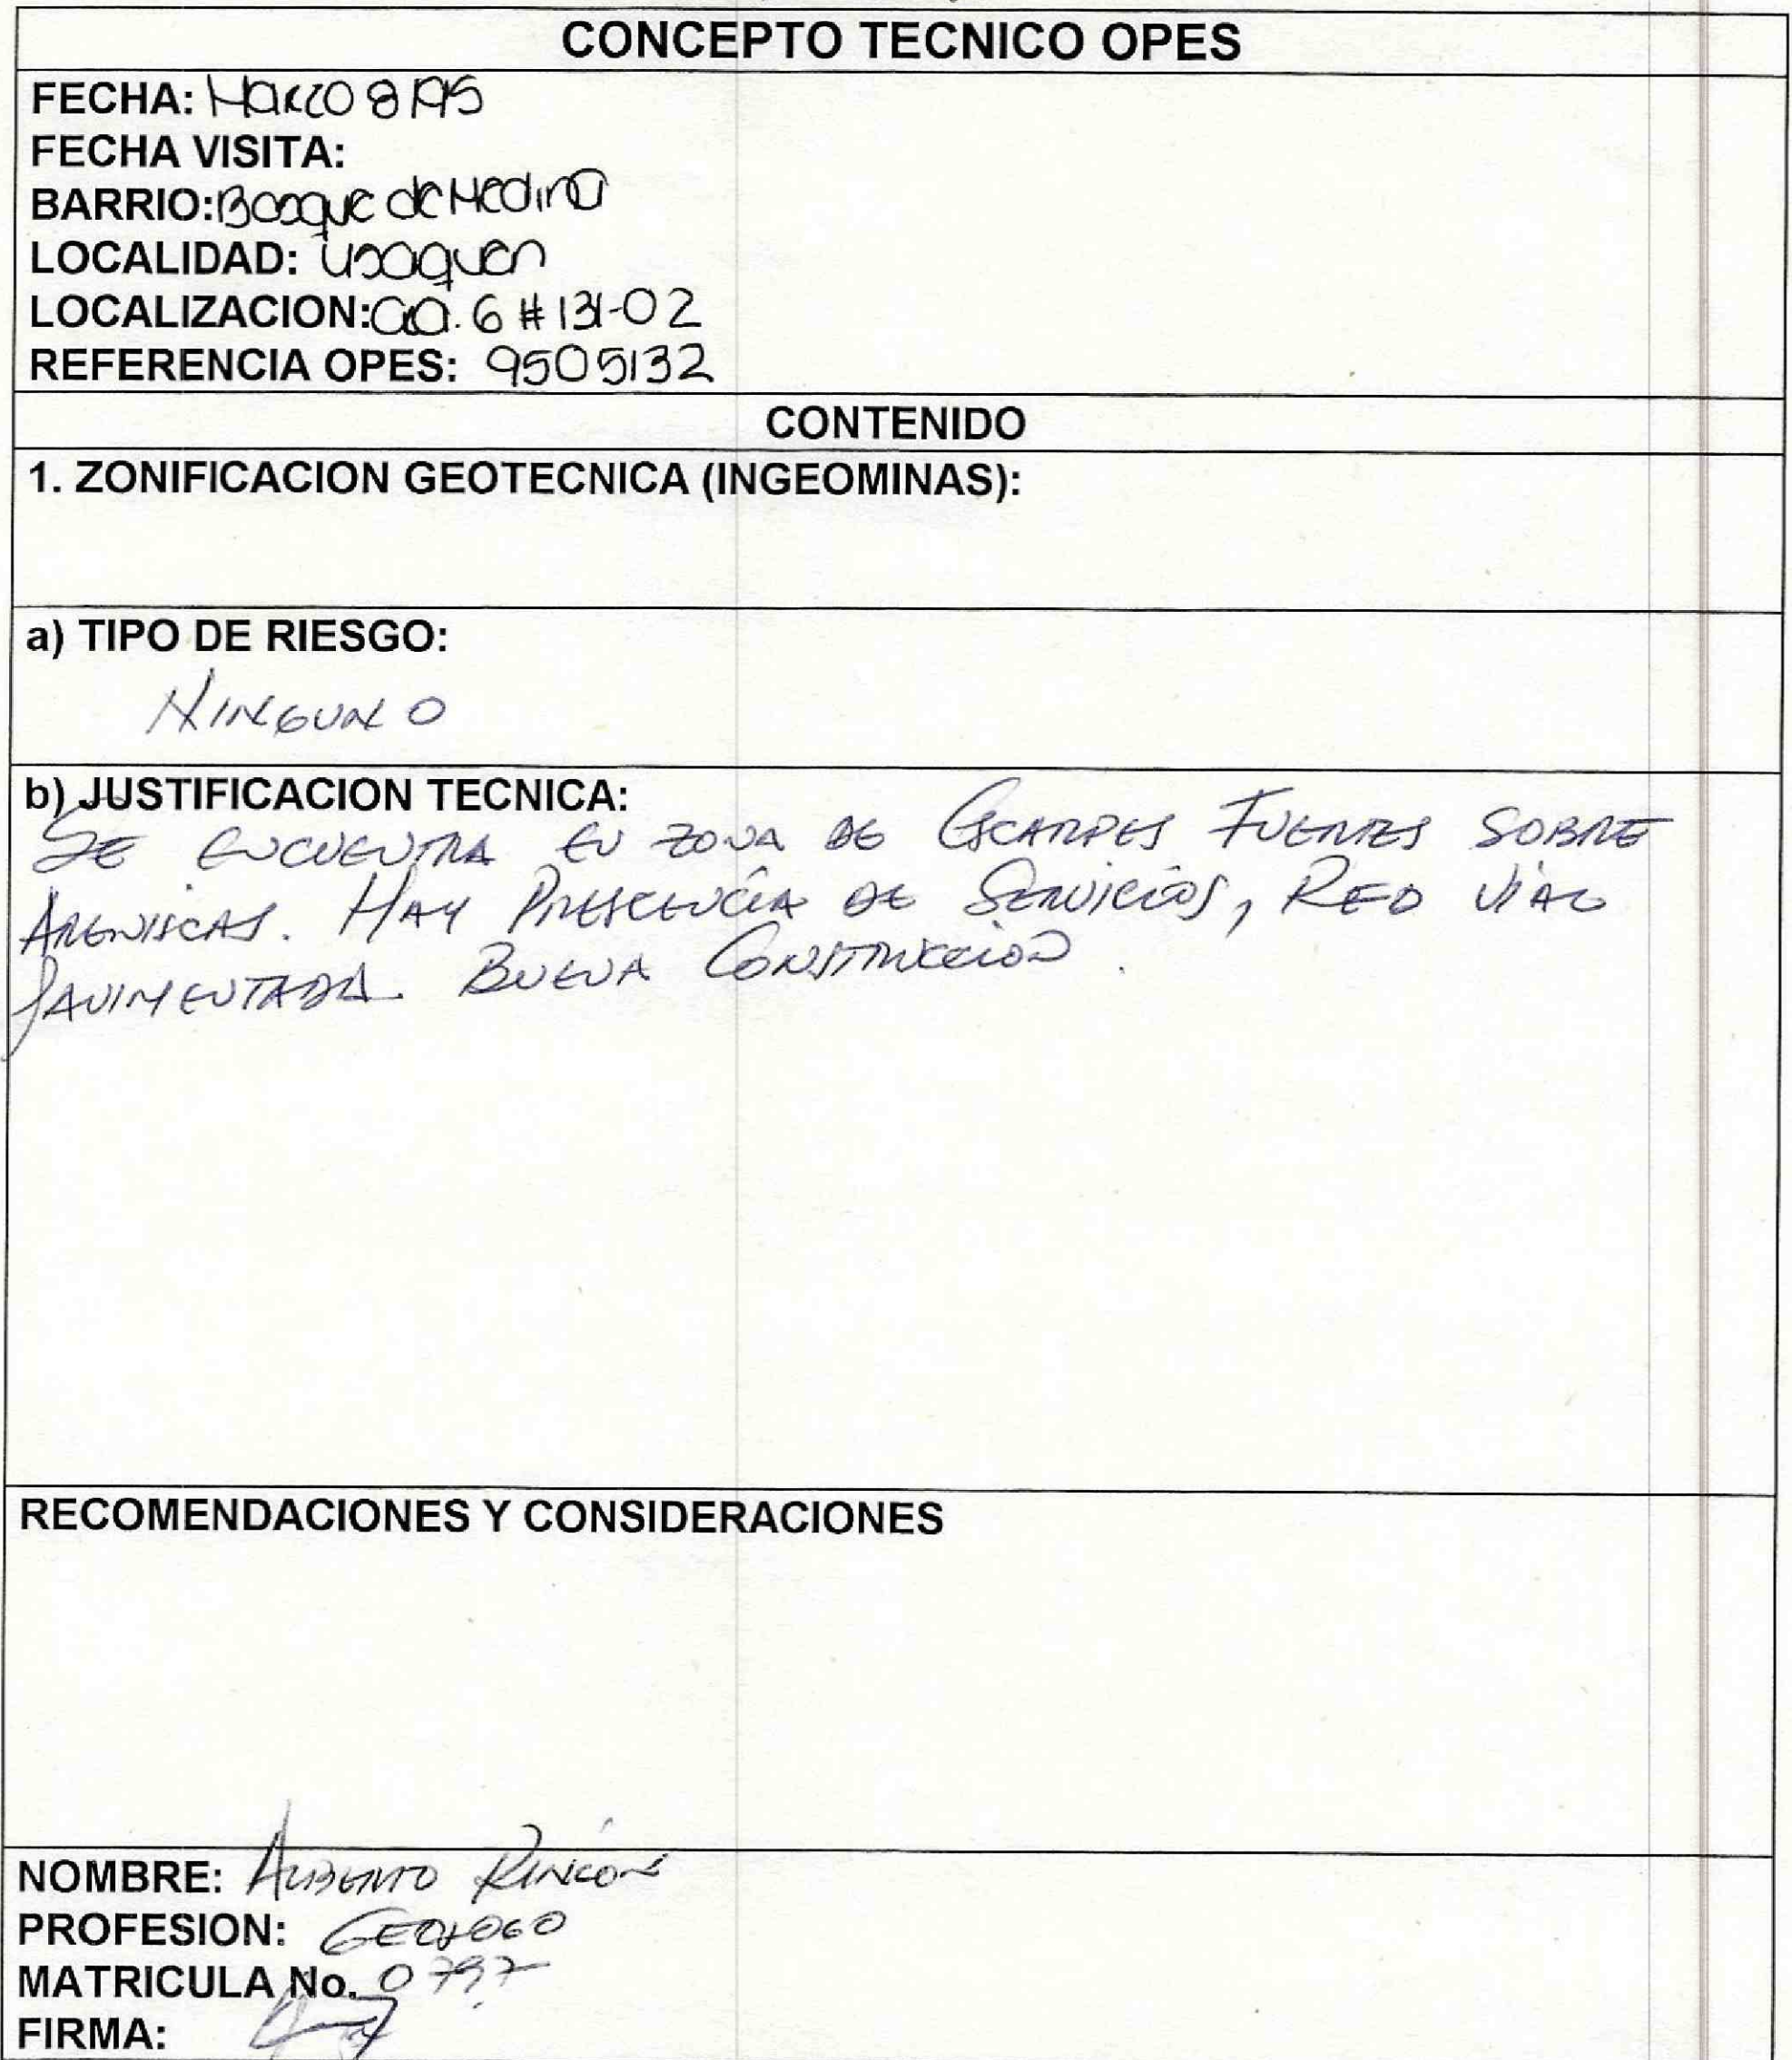 CONCEPTO TECNICO OPES
FECHA: Marzo 8/95
FECHA VISITA:
BARRIO: Bosque de Medina
LOCALIDAD: Usaquen
LOCALIZACION: Cra. 6 # 131-02
REFERENCIA OPES: 9505132
CONTENIDO
1. ZONIFICACION GEOTECNICA (INGEOMINAS):
a) TIPO DE RIESGO:
NINGUNO
b) JUSTIFICACION TECNICA:
SE ENCUENTRA EN ZONA DE ESCARPES FUERTES SOBRE
ARENISCAS. HAY PRESCENCIA DE SERVICIOS, RED VIAL
PAVIMENTADA. BUENA CONSTRUCCION.
RECOMENDACIONES Y CONSIDERACIONES
NOMBRE: ALBERTO RINCÓN
PROFESION: GEOLOGO
MATRICULA No. 0797
FIRMA: